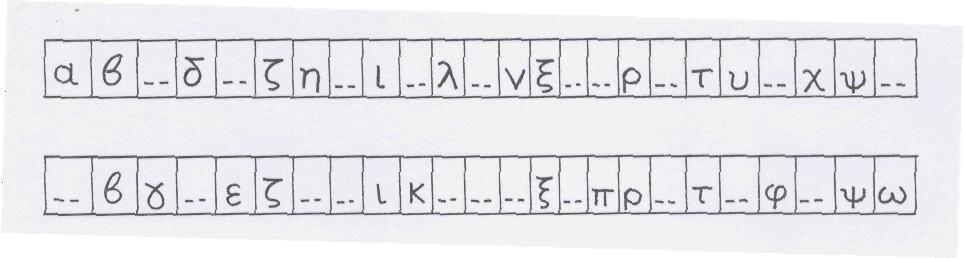 α β -- δ -- ζ η -- ι -- λ -- ν ξ -- -- ρ -- τ υ -- χ ψ --
-- β γ -- ε ζ -- -- ι κ -- -- -- ξ -- π ρ -- τ -- φ -- ψ ω